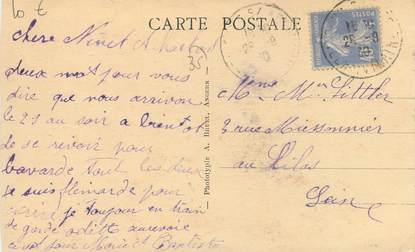 10 €
CARTE POSTALE
chère Ninet
35
deux mot pour vous
dire que nous arrivon
le 21 au soir a bientot
de se revoir pour
bavarde tout les deux
je suis flémarde pour
écrire je toujour en train
de garde odette aurevoir
Marie et Baptiste
— Phototypie A. Bruel, Angers —
Mme Mr Littler
2 rue Meissonnier
au Lilas
Seine